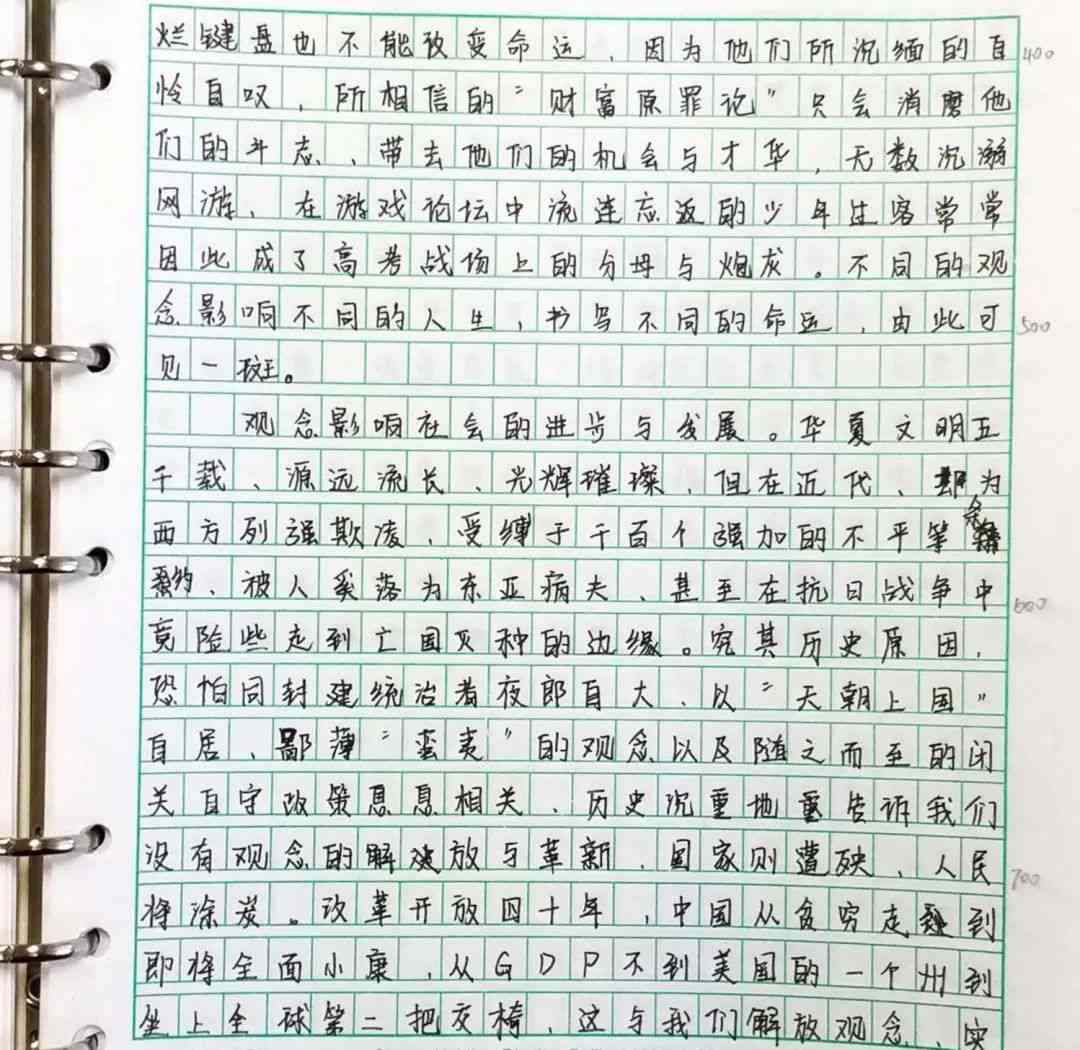 烂键盘也不能改变命运，因为他们所沉缅的自 400
怜自叹，所相信的“财富原罪论”只会消磨他
们的斗志、带去他们的机会与才华，无数沉溺
网游、在游戏论坛中流连忘返的少年过客常常
因此成了高考战场上的分母与炮灰。不同的观
念影响不同的人生，书写不同的命运，由此可 500
见一斑。
观念影响社会的进步与发展。华夏文明五
千载、源远流长、光辉璀璨，但在近代、却为
西方列强欺凌，受缚于千百个强加的不平等条
约、被人奚落为东亚病夫、甚至在抗日战争中 600
竟险些走到亡国灭种的边缘。究其历史原因，
恐怕同封建统治者夜郎自大、以“天朝上国”
自居、鄙薄“蛮夷”的观念以及随之而至的闭
关自守政策息息相关、历史沉重地告诉我们
没有观念的解放与革新，国家则遭殃、人民 700
将涂炭。改革开放四十年，中国从贫穷走到
即将全面小康，从GDP不到美国的一个州到
坐上全球第二把交椅，这与我们解放观念、实